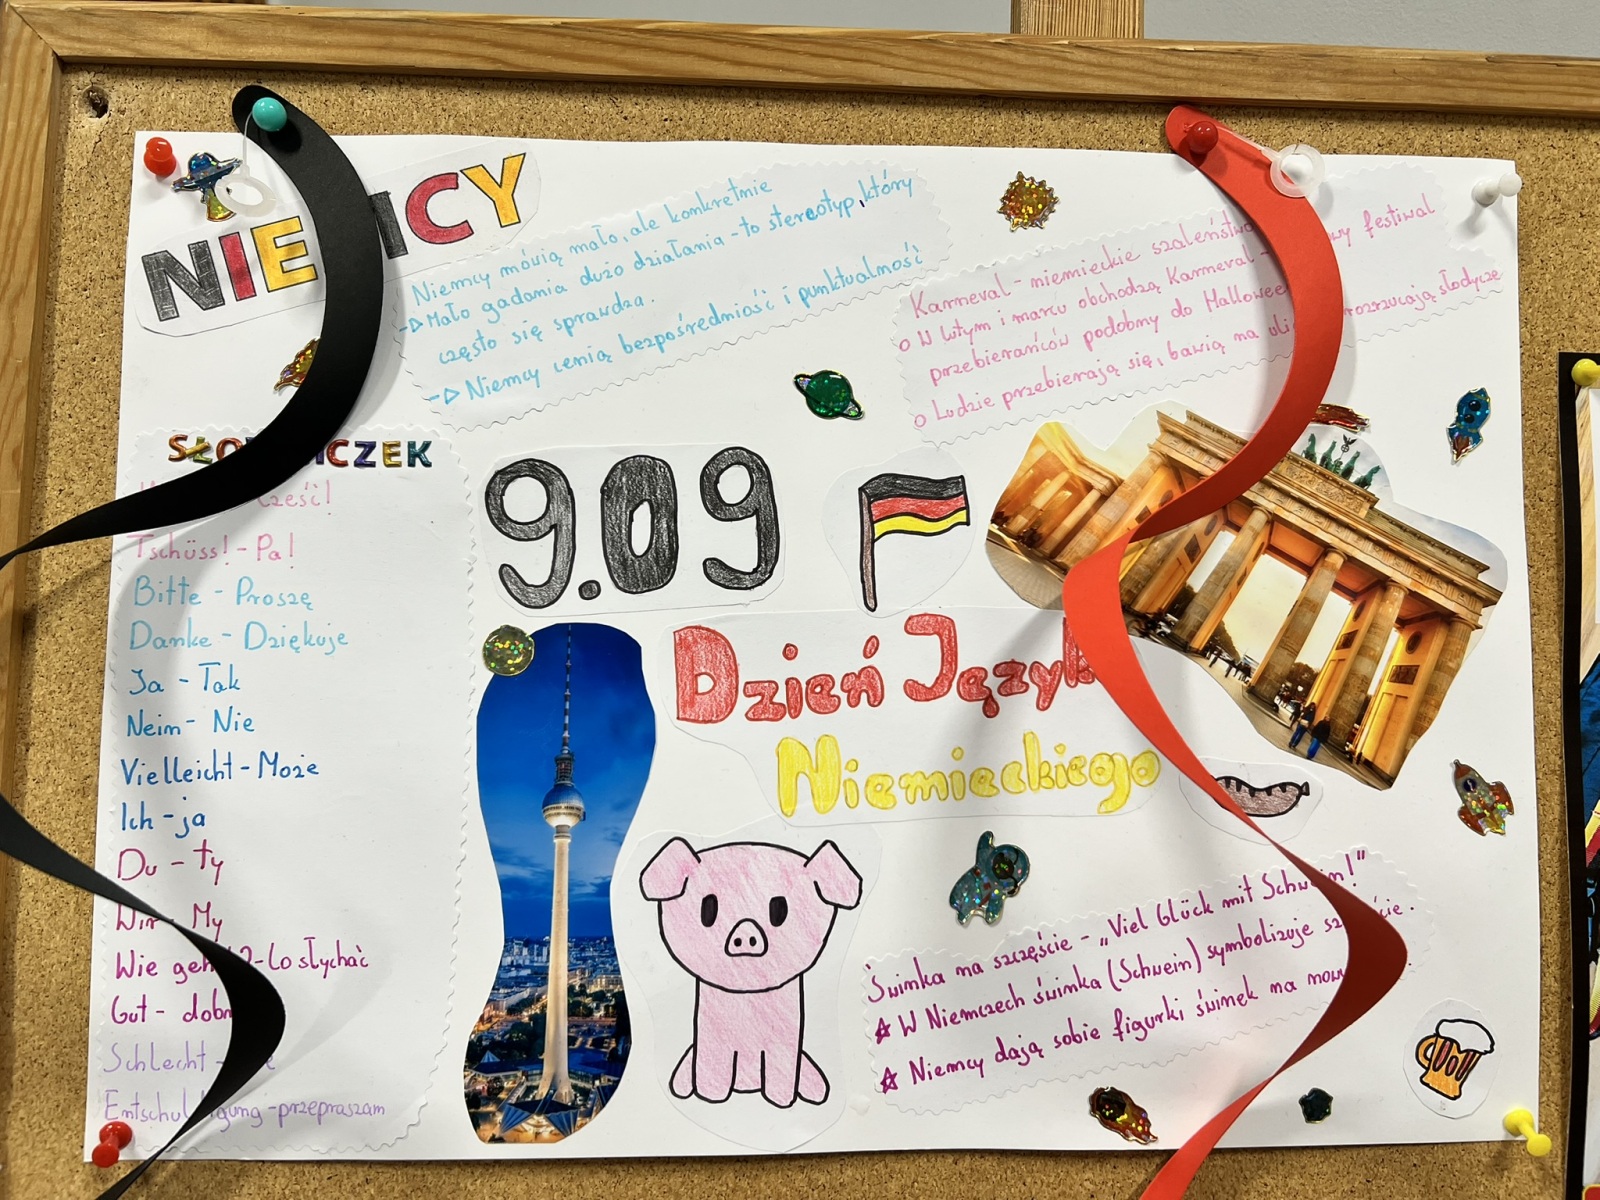 NIEMCY
Niemcy mówią mało, ale konkretnie
Mało gadania dużo działania - to stereotyp, który
często się sprawdza.
Niemcy cenią bezpośredniość i punktualność
Karneval - niemieckie szaleństwo
W lutym i marcu obchodzą Karneval - festiwal
przebierańców podobny do Hallowee
Ludzie przebierają się, bawią na uli rozrzucają słodycze
SŁOWNICZEK
Cześć!
Tschüss! - Pa!
Bitte - Proszę
Danke - Dziękuje
Ja - Tak
Nein - Nie
Vielleicht - Może
Ich - ja
Du - ty
Wir - My
Wie geht? - Co słychać
Gut - dobr
Schlecht -
Entschuldigung - przepraszam
9.09
Dzień Język
Niemieckiego
Świnka na szczęście - „Viel Glück mit Schwein!”
W Niemczech świnka (Schwein) symbolizuje szczęście.
Niemcy dają sobie figurki świnek na now